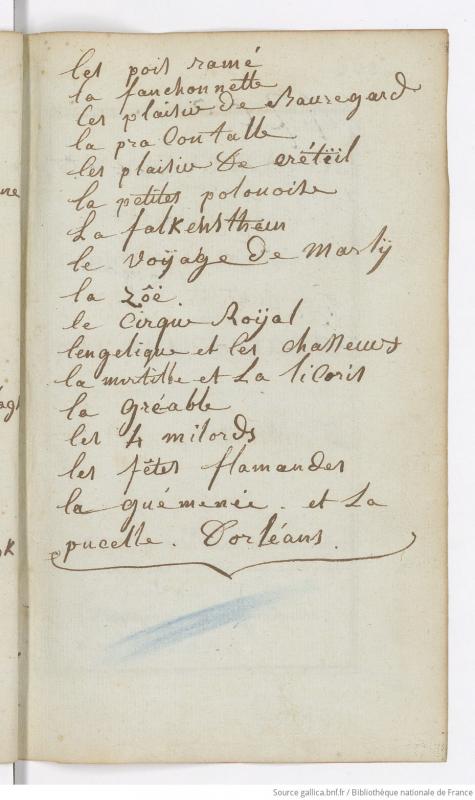 les pois ramé
la fanchonnette
les plaisir de Bauregard
la pra Contalle
les plaisir De crétëïl
la petites polonoise
La falKensthein
le voÿage de Marlÿ
la zôë.
le Cirque Roÿal
lengelique et les chasseurs
la mirtille et La licoris
la gréable
les 4 milords
les fêtes flamandes
la guémenée. et La
pucelle. Dorléans.
Source gallica.bnf.fr / Bibliothèque nationale de France